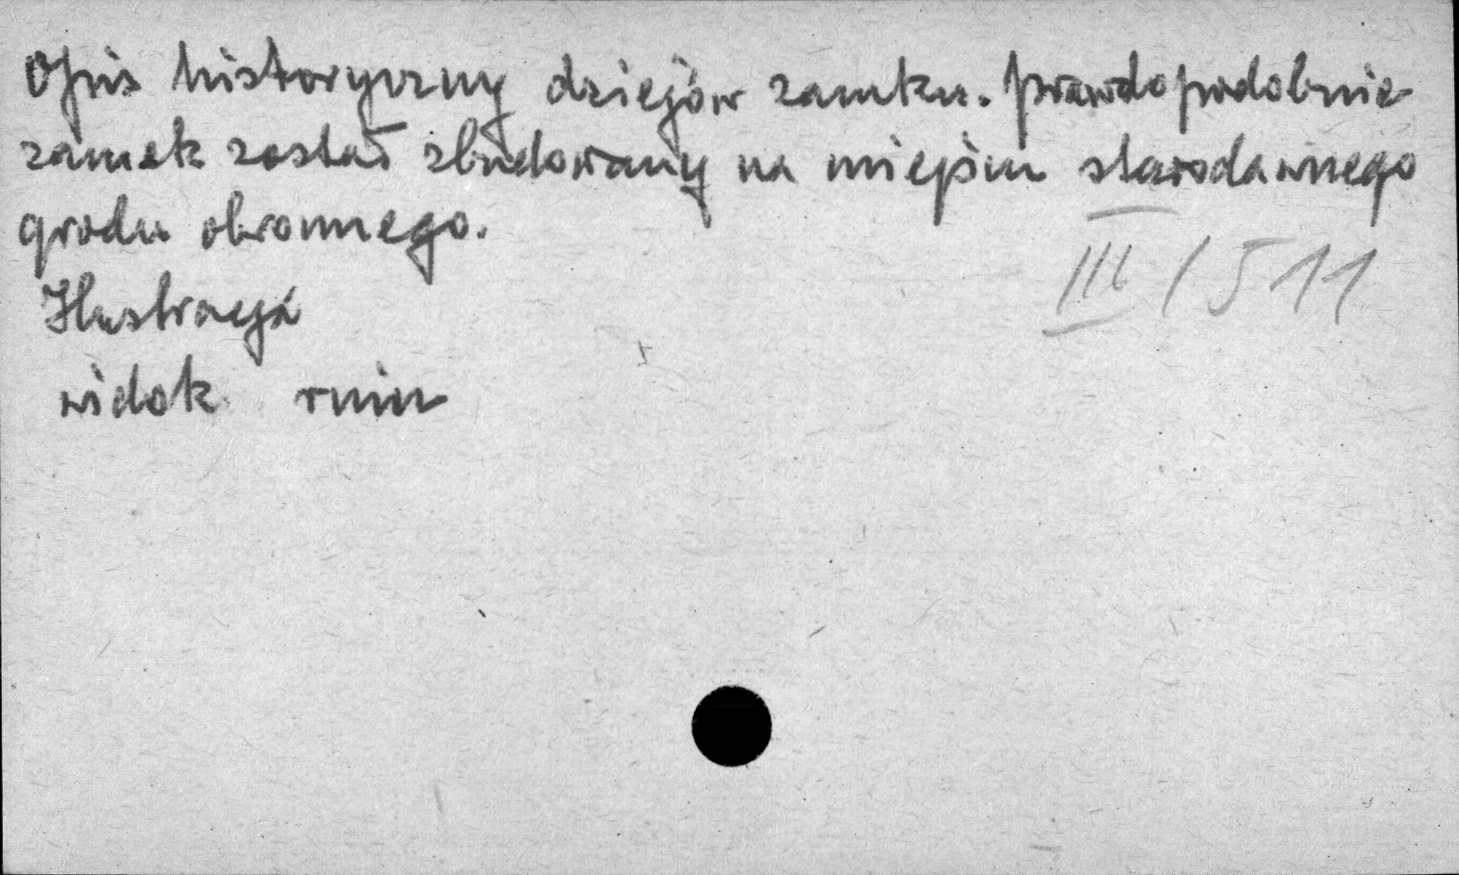 Opis historyczny dziejów zamku. Prawdopodobnie
zamek został zbudowany na miejscu starodawnego
grodu obronnego.
III / 511
Ilustracja
widok ruin